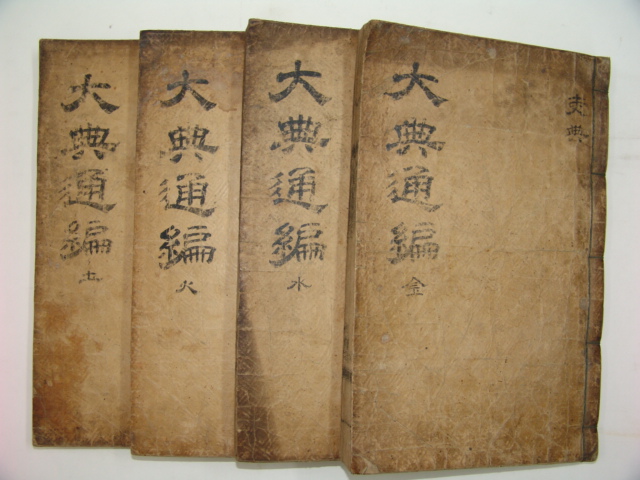 吏典
大典通編 金
大典通編 水
大典通編 火
大典通編 土